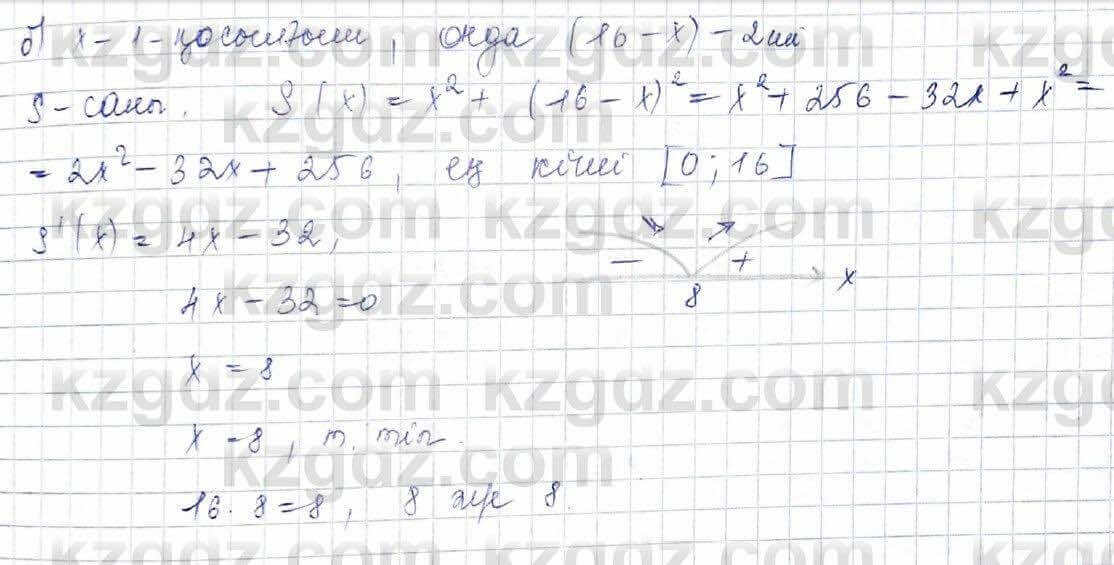 б) x - 1 - қосылғыш, онда (16 - x) - 2 ші
S - саны. S(x) = x² + (16 - x)² = x² + 256 - 32x + x² =
= 2x² - 32x + 256, ең кіші [0; 16]
S'(x) = 4x - 32,
- +
8 x
4x - 32 = 0
x = 8
x - 8, m. min.
16 · 8 = 8, 8 және 8.
kzgdz.com